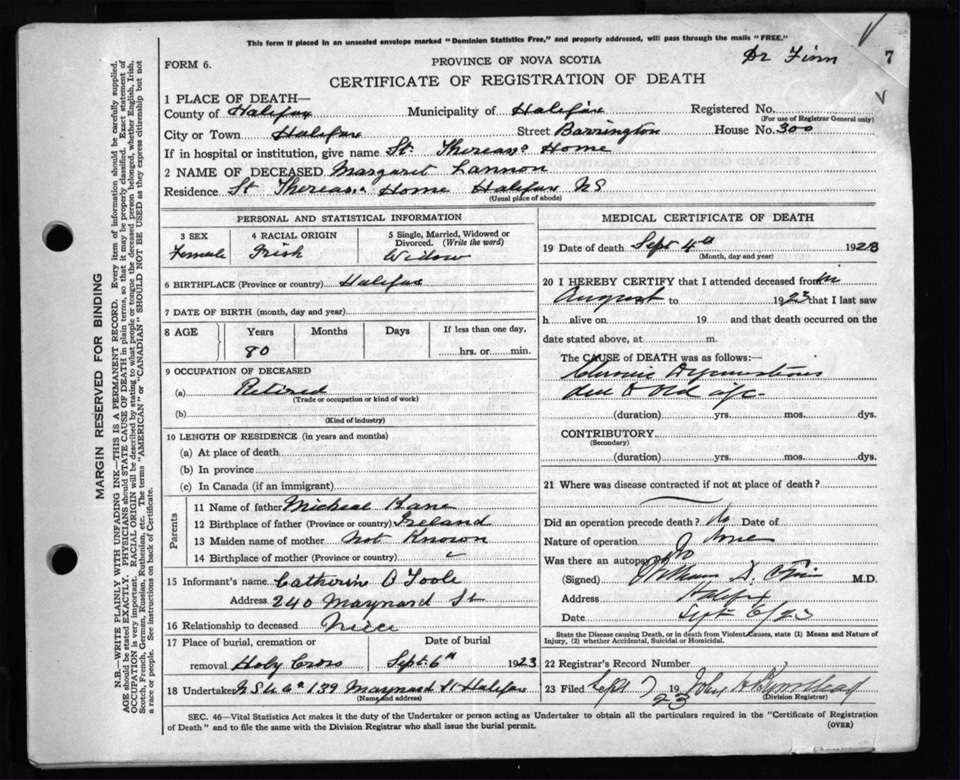 This form if placed in an unsealed envelope marked "Dominion Statistics Free," and properly addressed, will pass through the mails "FREE."
Dr Finn
7
FORM 6.
PROVINCE OF NOVA SCOTIA
CERTIFICATE OF REGISTRATION OF DEATH
1 PLACE OF DEATH—
County of Halifax Municipality of Halifax Registered No.
(For use of Registrar General only)
City or Town Halifax Street Barrington House No. 300
If in hospital or institution, give name St. Thereasa Home
2 NAME OF DECEASED Margaret Lannon
Residence St Thereasa Home Halifax NS
(Usual place of abode)
PERSONAL AND STATISTICAL INFORMATION
3 SEX
Female
4 RACIAL ORIGIN
Irish
5 Single, Married, Widowed or
Divorced. (Write the word)
Widow
6 BIRTHPLACE (Province or country) Halifax
7 DATE OF BIRTH (month, day and year)
8 AGE Years Months Days If less than one day,
80 hrs. or min.
9 OCCUPATION OF DECEASED
(a) Retired
(Trade or occupation or kind of work)
(b)
(Kind of industry)
10 LENGTH OF RESIDENCE (in years and months)
(a) At place of death
(b) In province
(c) In Canada (if an immigrant)
Parents
11 Name of father Micheal Kane
12 Birthplace of father (Province or country) Ireland
13 Maiden name of mother Not Known
14 Birthplace of mother (Province or country) "
15 Informant's name Catherin O Toole
Address 240 Maynard St
16 Relationship to deceased Niece
17 Place of burial, cremation or Date of burial
removal Holy Cross Sept. 6th 1923
18 Undertaker 139 Maynard St Halifax
(Name and address)
MEDICAL CERTIFICATE OF DEATH
19 Date of death Sept 4th 1923
(Month, day and year)
20 I HEREBY CERTIFY that I attended deceased from in
August to 1923 that I last saw
h alive on 19 and that death occurred on the
date stated above, at m.
The CAUSE of DEATH was as follows:—
Chronic
due to Old age
(duration) yrs. mos. dys.
CONTRIBUTORY
(Secondary)
(duration) yrs. mos. dys.
21 Where was disease contracted if not at place of death?
Did an operation precede death? No Date of
Nature of operation None
Was there an autopsy? No
(Signed) William D. Finn M.D.
Address Halifax
Date Sept 6/23
State the Disease causing Death, or in death from Violent Causes, state (1) Means and Nature of
Injury, (2) whether Accidental, Suicidal or Homicidal.
22 Registrar's Record Number
23 Filed Sept 7 1923 John
(Division Registrar)
SEC. 46—Vital Statistics Act makes it the duty of the Undertaker or person acting as Undertaker to obtain all the particulars required in the "Certificate of Registration
of Death" and to file the same with the Division Registrar who shall issue the burial permit.
(OVER)
MARGIN RESERVED FOR BINDING
N.B.—WRITE PLAINLY WITH UNFADING INK—THIS IS A PERMANENT RECORD. Every item of information should be carefully supplied.
AGE should be stated EXACTLY. PHYSICIANS should STATE CAUSE OF DEATH in plain terms, so that it may be properly classified. Exact statement of
OCCUPATION is very important. RACIAL ORIGIN will be described by stating to what people or tongue the deceased person belonged, whether English, Irish,
Scotch, French, German, Russian, Ruthenian, etc. The terms "AMERICAN" or "CANADIAN" SHOULD NOT BE USED as they express citizenship but not
a race or people. See instructions on back of Certificate.